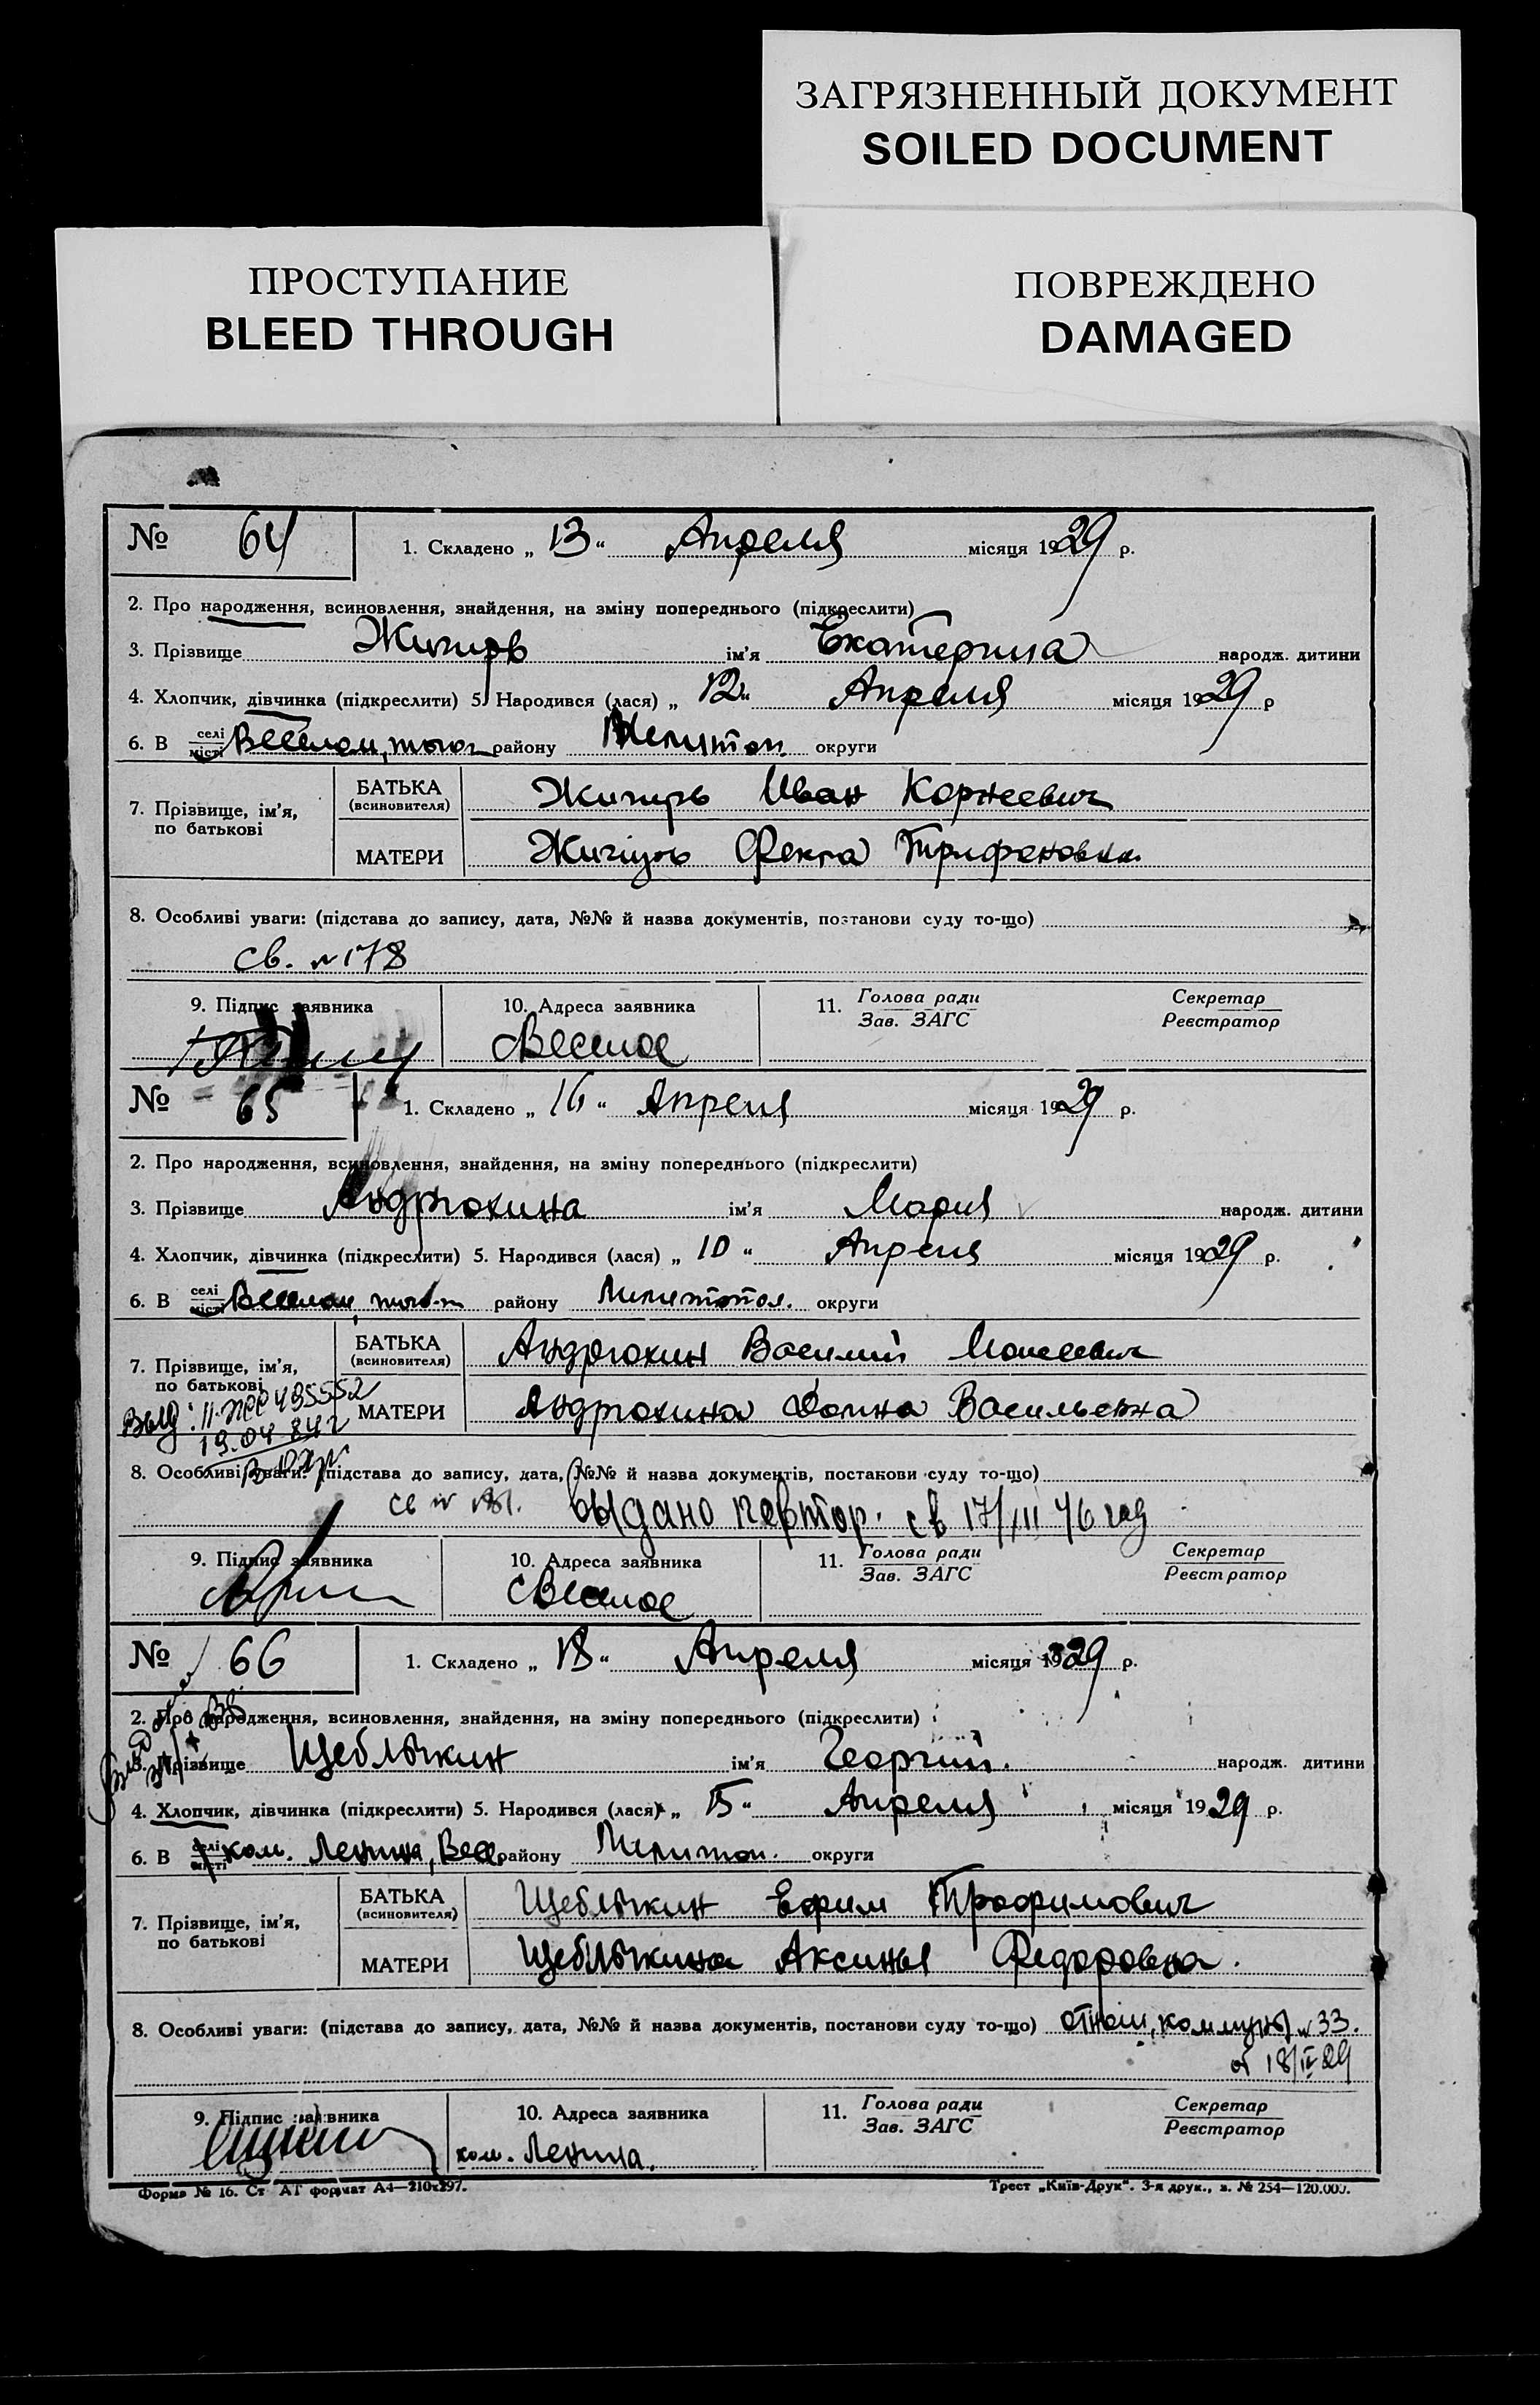 ЗАГРЯЗНЕННЫЙ ДОКУМЕНТ
SOILED DOCUMENT
ПРОСТУПАНИЕ
BLEED THROUGH
ПОВРЕЖДЕНО
DAMAGED
№ 64 1. Складено „ 13 “ Апреля місяця 1929 р.
2. Про народження, всиновлення, знайдення, на зміну попереднього (підкреслити)
3. Прізвище ім'я Екатерина народж. дитини
4. Хлопчик, дівчинка (підкреслити) 5. Народився (лася) „ 12 “ Апреля місяця 1929 р
6. В селі місті Веселом, району Мелитоп. округи
7. Прізвище, ім'я, по батькові
БАТЬКА (всиновителя) Иван Корнеевич
МАТЕРИ Фекла Трифоновна
8. Особливі уваги: (підстава до запису, дата, №№ й назва документів, постанови суду то-що)
св. № 178
9. Підпис заявника 10. Адреса заявника 11. Голова ради Зав. ЗАГС Секретар Реєстратор
с Веселое
№ 65 1. Складено „ 16 “ Апреля місяця 1929 р.
2. Про народження, всиновлення, знайдення, на зміну попереднього (підкреслити)
3. Прізвище Андрюхина ім'я Мария народж. дитини
4. Хлопчик, дівчинка (підкреслити) 5. Народився (лася) „ 10 “ Апреля місяця 1929 р.
6. В селі місті Веселом, району Мелитопол. округи
7. Прізвище, ім'я, по батькові
БАТЬКА (всиновителя) Андрюхин Василий Моисеевич
МАТЕРИ Андрюхина Домна Васильевна
Выд. 435552
19.04 84 г
8. Особливі уваги: (підстава до запису, дата, №№ й назва документів, постанови суду то-що)
св № 181. Выдано повтор. св 17/III 46 год
9. Підпис заявника 10. Адреса заявника 11. Голова ради Зав. ЗАГС Секретар Реєстратор
с Веселое
№ 66 1. Складено „ 18 “ Апреля місяця 1929 р.
2. Про народження, всиновлення, знайдення, на зміну попереднього (підкреслити)
3. Прізвище Щеблыкин ім'я Георгий. народж. дитини
4. Хлопчик, дівчинка (підкреслити) 5. Народився (лася) „ 15 “ Апреля місяця 1929 р.
6. В селі місті ком. Ленина, Вес. району Мелитоп. округи
7. Прізвище, ім'я, по батькові
БАТЬКА (всиновителя) Щеблыкин Ефим Трофимович
МАТЕРИ Щеблыкина Аксинья Федоровна.
8. Особливі уваги: (підстава до запису, дата, №№ й назва документів, постанови суду то-що) отнош. коммуны № 33.
от 18/IV 29
9. Підпис заявника 10. Адреса заявника 11. Голова ради Зав. ЗАГС Секретар Реєстратор
ком. Ленина.
Форма № 16. Ст АТ формат А4—210х297. Трест „Київ-Друк“. 3-я друк., з. № 254—120.000.